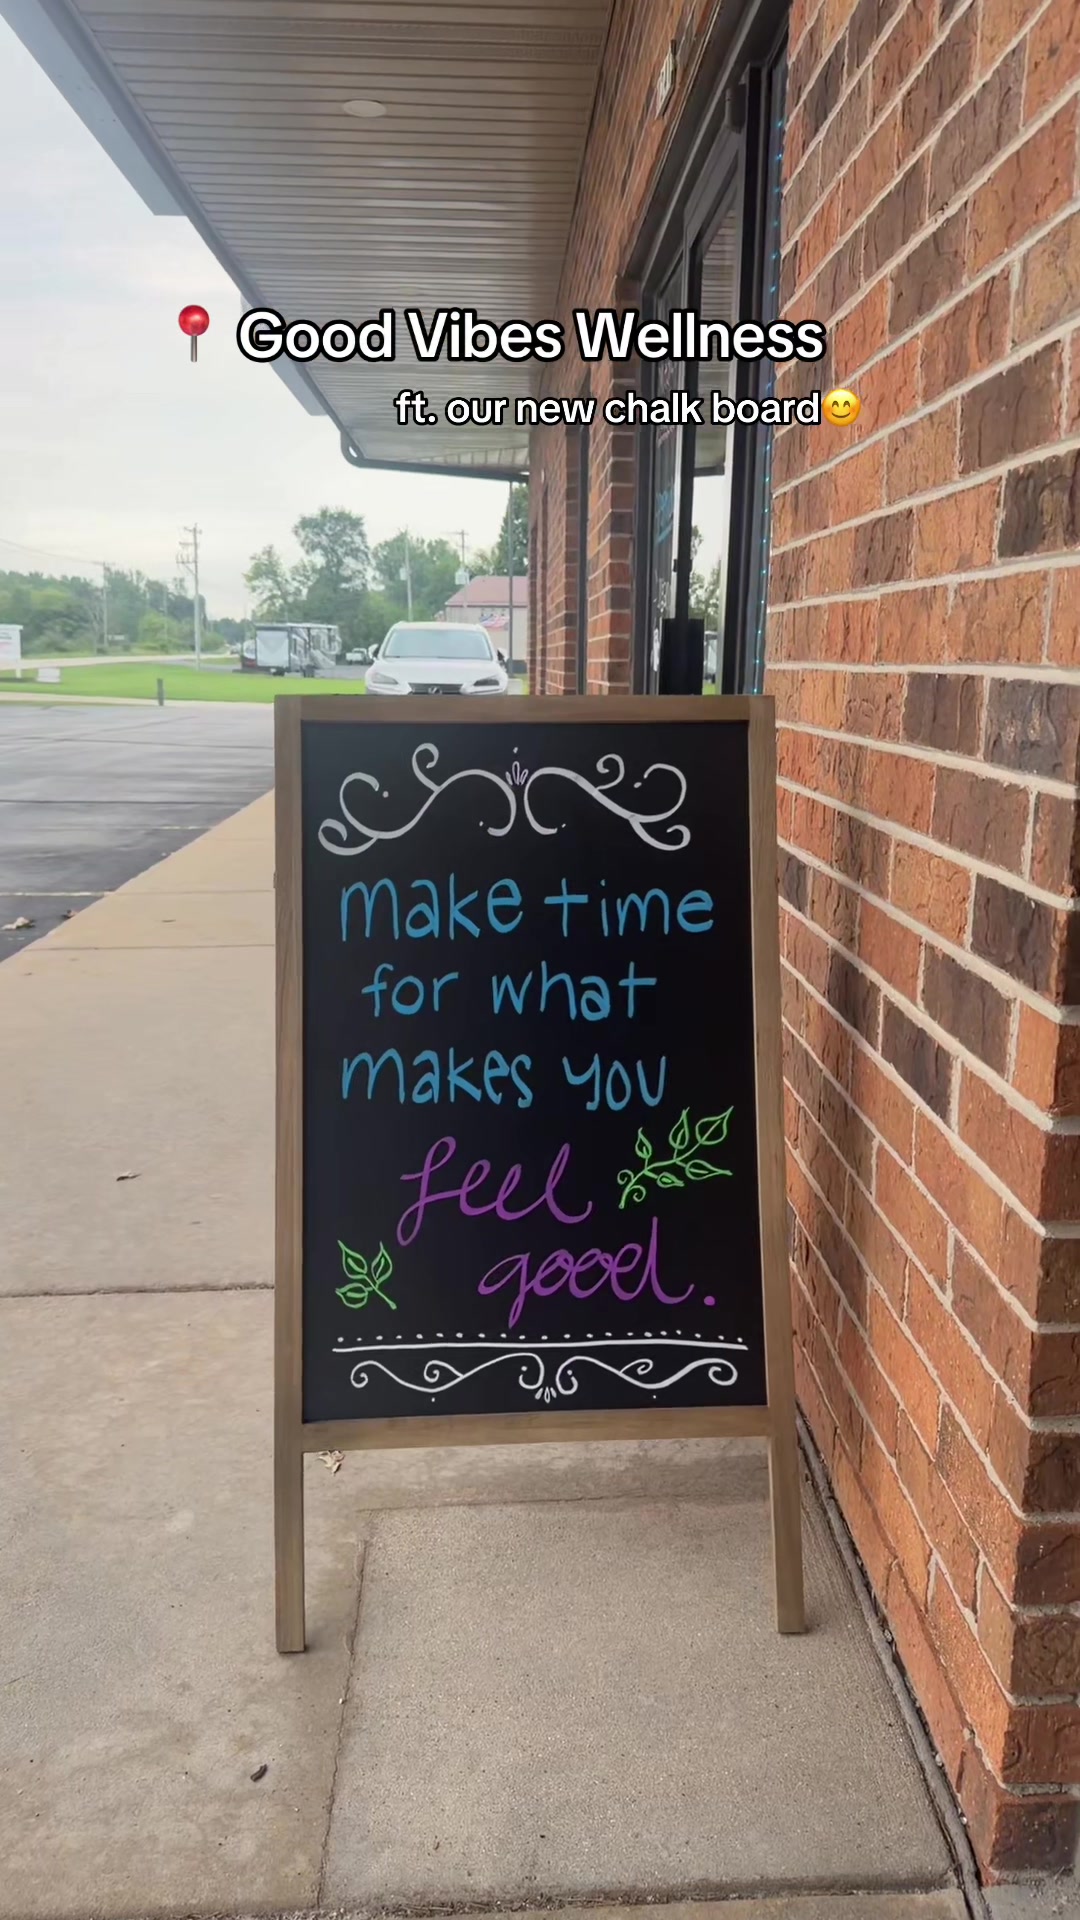 📍 Good Vibes Wellness
ft. our new chalk board😊
make time
for what
makes you
feel
good.